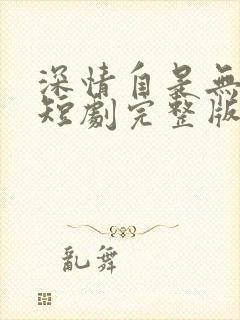 深情自是無
短劇完整版
亂舞